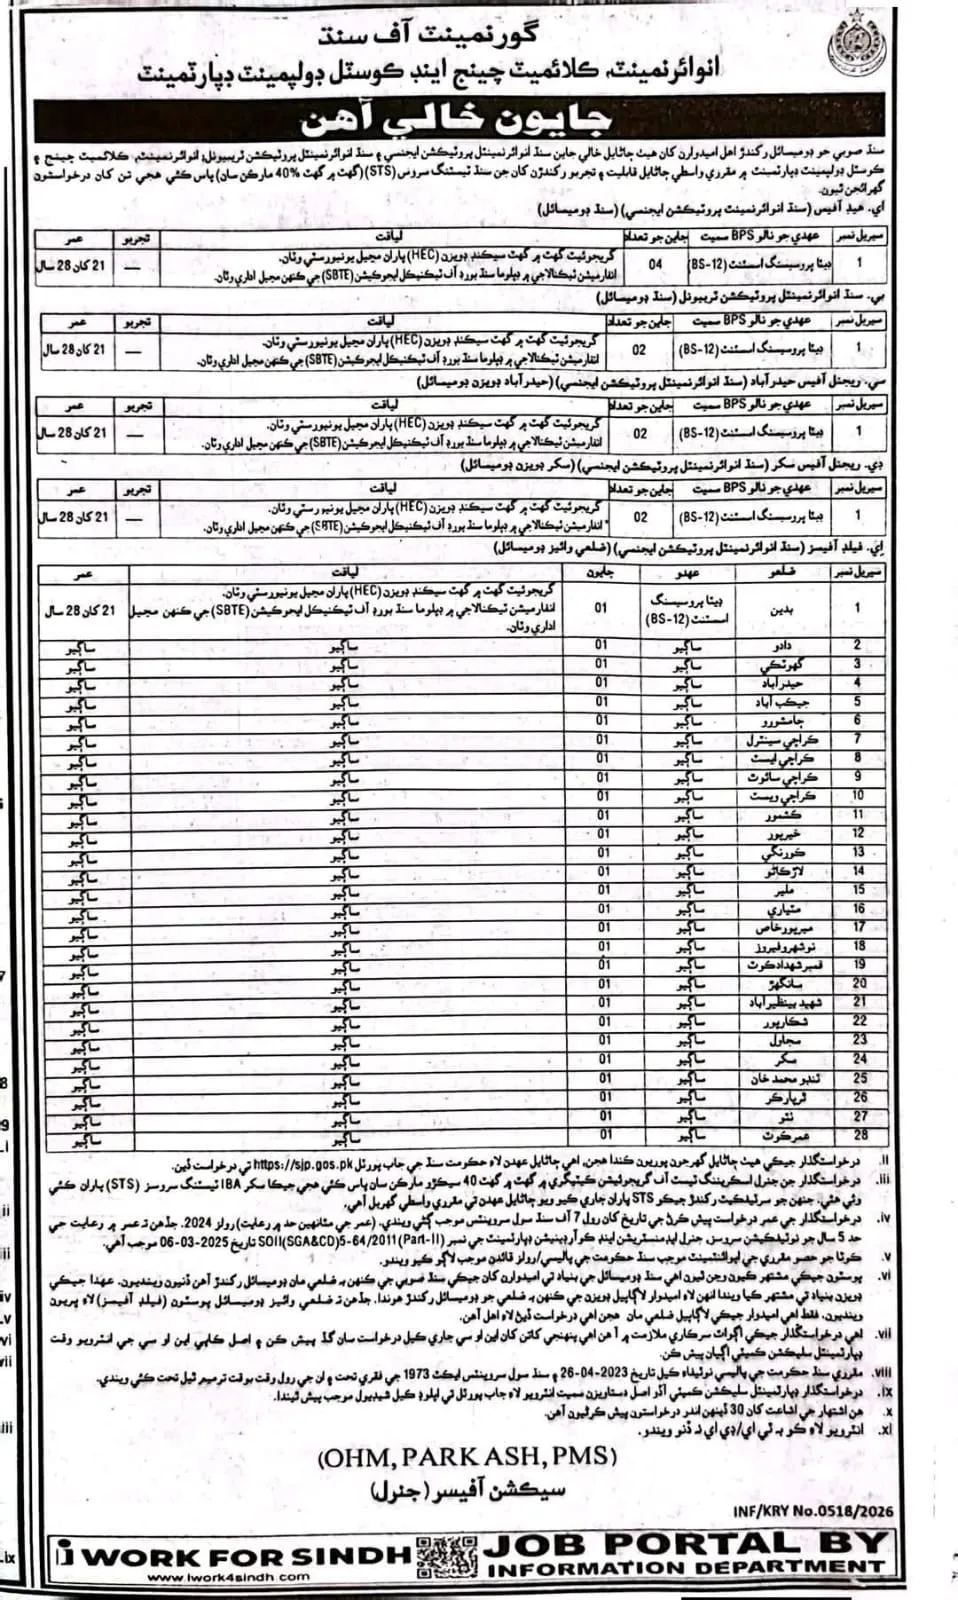 گورنمينٽ آف سنڌ
انوائرنمينٽ، ڪلائميٽ چينج اينڊ ڪوسٽل ڊولپمينٽ ڊپارٽمينٽ
جايون خالي آهن
سنڌ صوبي جو ڊوميسائل رکندڙ اهل اميدوارن کان هيٺ ڄاڻايل خالي جاين سنڌ انوائرنمينٽل پروٽيڪشن ايجنسي ۽ سنڌ انوائرنمينٽل پروٽيڪشن ٽربيونل، انوائرنمينٽ، ڪلائميٽ چينج ۽
ڪوسٽل ڊولپمينٽ ڊپارٽمينٽ ۾ مقرري واسطي ڄاڻايل قابليت ۽ تجربو رکندڙن کان جن سنڌ ٽيسٽنگ سروس (STS) (گهٽ ۾ گهٽ 40% مارڪن سان) پاس ڪئي هجي تن کان درخواستون
گهرائجن ٿيون.
اي. هيڊ آفيس (سنڌ انوائرنمينٽ پروٽيڪشن ايجنسي) (سنڌ ڊوميسائل)
سيريل نمبر عهدي جو نالو BPS سميت جاين جو تعداد لياقت تجربو عمر
1 ڊيٽا پروسيسنگ اسسٽنٽ (BS-12) 04 گريجوئيٽ گهٽ ۾ گهٽ سيڪنڊ ڊويزن (HEC) پاران مڃيل يونيورسٽي وٽان. — 21 کان 28 سال
انفارميشن ٽيڪنالاجي ۾ ڊپلوما سنڌ بورڊ آف ٽيڪنيڪل ايجوڪيشن (SBTE) جي ڪنهن مڃيل اداري وٽان.
بي. سنڌ انوائرنمينٽل پروٽيڪشن ٽربيونل (سنڌ ڊوميسائل)
سيريل نمبر عهدي جو نالو BPS سميت جاين جو تعداد لياقت تجربو عمر
1 ڊيٽا پروسيسنگ اسسٽنٽ (BS-12) 02 گريجوئيٽ گهٽ ۾ گهٽ سيڪنڊ ڊويزن (HEC) پاران مڃيل يونيورسٽي وٽان. — 21 کان 28 سال
انفارميشن ٽيڪنالاجي ۾ ڊپلوما سنڌ بورڊ آف ٽيڪنيڪل ايجوڪيشن (SBTE) جي ڪنهن مڃيل اداري وٽان.
سي. ريجنل آفيس حيدرآباد (سنڌ انوائرنمينٽل پروٽيڪشن ايجنسي) (حيدرآباد ڊويزن ڊوميسائل)
سيريل نمبر عهدي جو نالو BPS سميت جاين جو تعداد لياقت تجربو عمر
1 ڊيٽا پروسيسنگ اسسٽنٽ (BS-12) 02 گريجوئيٽ گهٽ ۾ گهٽ سيڪنڊ ڊويزن (HEC) پاران مڃيل يونيورسٽي وٽان. — 21 کان 28 سال
انفارميشن ٽيڪنالاجي ۾ ڊپلوما سنڌ بورڊ آف ٽيڪنيڪل ايجوڪيشن (SBTE) جي ڪنهن مڃيل اداري وٽان.
ڊي. ريجنل آفيس سکر (سنڌ انوائرنمينٽل پروٽيڪشن ايجنسي) (سکر ڊويزن ڊوميسائل)
سيريل نمبر عهدي جو نالو BPS سميت جاين جو تعداد لياقت تجربو عمر
1 ڊيٽا پروسيسنگ اسسٽنٽ (BS-12) 02 گريجوئيٽ گهٽ ۾ گهٽ سيڪنڊ ڊويزن (HEC) پاران مڃيل يونيورسٽي وٽان. — 21 کان 28 سال
انفارميشن ٽيڪنالاجي ۾ ڊپلوما سنڌ بورڊ آف ٽيڪنيڪل ايجوڪيشن (SBTE) جي ڪنهن مڃيل اداري وٽان.
اِي. فيلڊ آفيسز (سنڌ انوائرنمينٽل پروٽيڪشن ايجنسي) (ضلعي وائيز ڊوميسائل)
سيريل نمبر ضلعو عهدو جايون لياقت عمر
1 بدين ڊيٽا پروسيسنگ اسسٽنٽ (BS-12) 01 گريجوئيٽ گهٽ ۾ گهٽ سيڪنڊ ڊويزن (HEC) پاران مڃيل يونيورسٽي وٽان. 21 کان 28 سال
انفارميشن ٽيڪنالاجي ۾ ڊپلوما سنڌ بورڊ آف ٽيڪنيڪل ايجوڪيشن (SBTE) جي ڪنهن مڃيل
اداري وٽان.
2 دادو ساڳيو 01 ساڳيو ساڳيو
3 گهوٽڪي ساڳيو 01 ساڳيو ساڳيو
4 حيدرآباد ساڳيو 01 ساڳيو ساڳيو
5 جيڪب آباد ساڳيو 01 ساڳيو ساڳيو
6 ڄامشورو ساڳيو 01 ساڳيو ساڳيو
7 ڪراچي سينٽرل ساڳيو 01 ساڳيو ساڳيو
8 ڪراچي ايسٽ ساڳيو 01 ساڳيو ساڳيو
9 ڪراچي سائوٿ ساڳيو 01 ساڳيو ساڳيو
10 ڪراچي ويسٽ ساڳيو 01 ساڳيو ساڳيو
11 ڪشمور ساڳيو 01 ساڳيو ساڳيو
12 خيرپور ساڳيو 01 ساڳيو ساڳيو
13 ڪورنگي ساڳيو 01 ساڳيو ساڳيو
14 لاڙڪاڻو ساڳيو 01 ساڳيو ساڳيو
15 ملير ساڳيو 01 ساڳيو ساڳيو
16 مٽياري ساڳيو 01 ساڳيو ساڳيو
17 ميرپورخاص ساڳيو 01 ساڳيو ساڳيو
18 نوشهروفيروز ساڳيو 01 ساڳيو ساڳيو
19 قمبر شهدادڪوٽ ساڳيو 01 ساڳيو ساڳيو
20 سانگهڙ ساڳيو 01 ساڳيو ساڳيو
21 شهيد بينظيرآباد ساڳيو 01 ساڳيو ساڳيو
22 شڪارپور ساڳيو 01 ساڳيو ساڳيو
23 سجاول ساڳيو 01 ساڳيو ساڳيو
24 سکر ساڳيو 01 ساڳيو ساڳيو
25 ٽنڊو محمد خان ساڳيو 01 ساڳيو ساڳيو
26 ٿرپارڪر ساڳيو 01 ساڳيو ساڳيو
27 ٺٽو ساڳيو 01 ساڳيو ساڳيو
28 عمرڪوٽ ساڳيو 01 ساڳيو ساڳيو
ii. درخواستگذار جيڪي هيٺ ڄاڻايل گهرجون پوريون ڪندا هجن، اهي ڄاڻايل عهدن لاءِ حڪومت سنڌ جي جاب پورٽل https://sjp.gos.pk تي درخواست ڏين.
iii. درخواستگذار جن جنرل اسڪريننگ ٽيسٽ آف گريجوئيشن ڪيٽيگري ۾ گهٽ ۾ گهٽ 40 سيڪڙو مارڪن سان پاس ڪئي هجي جيڪا سکر IBA ٽيسٽنگ سروسز (STS) پاران ڪئي
وئي هئي، جنهن جو سرٽيفڪيٽ رکندڙ جيڪو STS پاران جاري ڪيو ويو ڄاڻايل عهدن تي مقرري واسطي گهربل آهي.
iv. درخواستگذار جي عمر درخواست پيش ڪرڻ جي تاريخ کان رول 7 آف سنڌ سول سروينٽس موجب ڳڻي ويندي. (عمر جي مٿانهين حد ۾ رعايت) رولز 2024. جڏهن ته عمر ۾ رعايت جي
حد 5 سال جو نوٽيفڪيشن سروسز، جنرل ايڊمنسٽريشن اينڊ ڪوآرڊينيشن ڊپارٽمينٽ جي نمبر SOII(SGA&CD)5-64/2011 (Part-II) تاريخ 2025-03-06 موجب آهي.
v. ڪوٽا جو حصو مقرري جي اپوائنٽمينٽ موجب سنڌ حڪومت جي پاليسي/رولز قائدن موجب لاڳو ڪيو ويندو.
vi. پوسٽون جيڪي مشتهر ڪيون وڃن ٿيون اهي سنڌ ڊوميسائل جي بنياد تي اميدوارن کان جيڪي سنڌ صوبي جي ڪنهن به ضلعي مان ڊوميسائل رکندڙ آهن ڏنيون وينديون. عهدا جيڪي
ڊويزن بنياد تي مشتهر ڪيا ويندا انهن لاءِ اميدوار لاڳاپيل ڊويزن جي ڪنهن به ضلعي جو ڊوميسائل رکندڙ هوندا. جڏهن ته ضلعي وائيز ڊوميسائل پوسٽون (فيلڊ آفيسز) لاءِ ڀريون
وينديون، فقط اهي اميدوار جيڪي لاڳاپيل ضلعي مان هجن اهي درخواست ڏيڻ لاءِ اهل آهن.
vii. اهي درخواستگذار جيڪي اڳوات سرڪاري ملازمت ۾ آهن اهي پنهنجي کاتن کان اين او سي جاري ڪيل درخواست سان گڏ پيش ڪن ۽ اصل ڪاپي اين او سي جي انٽرويو وقت
ڊپارٽمينٽل سليڪشن ڪميٽي اڳيان پيش ڪن.
viii. مقرري سنڌ حڪومت جي پاليسي نوٽيفاءِ ڪيل تاريخ 2023-04-26 ۽ سنڌ سول سروينٽس ايڪٽ 1973 جي فقري تحت ۽ ان جي رول وقت بوقت ترميم ٿيل تحت ڪئي ويندي.
ix. درخواستگذار ڊپارٽمينٽل سليڪشن ڪميٽي آڏو اصل دستاويزن سميت انٽرويو لاءِ جاب پورٽل تي اپلوڊ ڪيل شيڊيول موجب پيش ٿيندا.
x. هن اشتهار جي اشاعت کان 30 ڏينهن اندر درخواستون پيش ڪرڻيون آهن.
xi. انٽرويو لاءِ ڪو به ٽي اي/ڊي اي نه ڏنو ويندو.
(OHM, PARKASH, PMS)
سيڪشن آفيسر (جنرل)
INF/KRY No.0518/2026
i WORK FOR SINDH
www.iwork4sindh.com
JOB PORTAL BY
INFORMATION DEPARTMENT